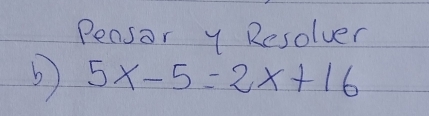 Pensar y Resolver
b) 5x-5=2x+16